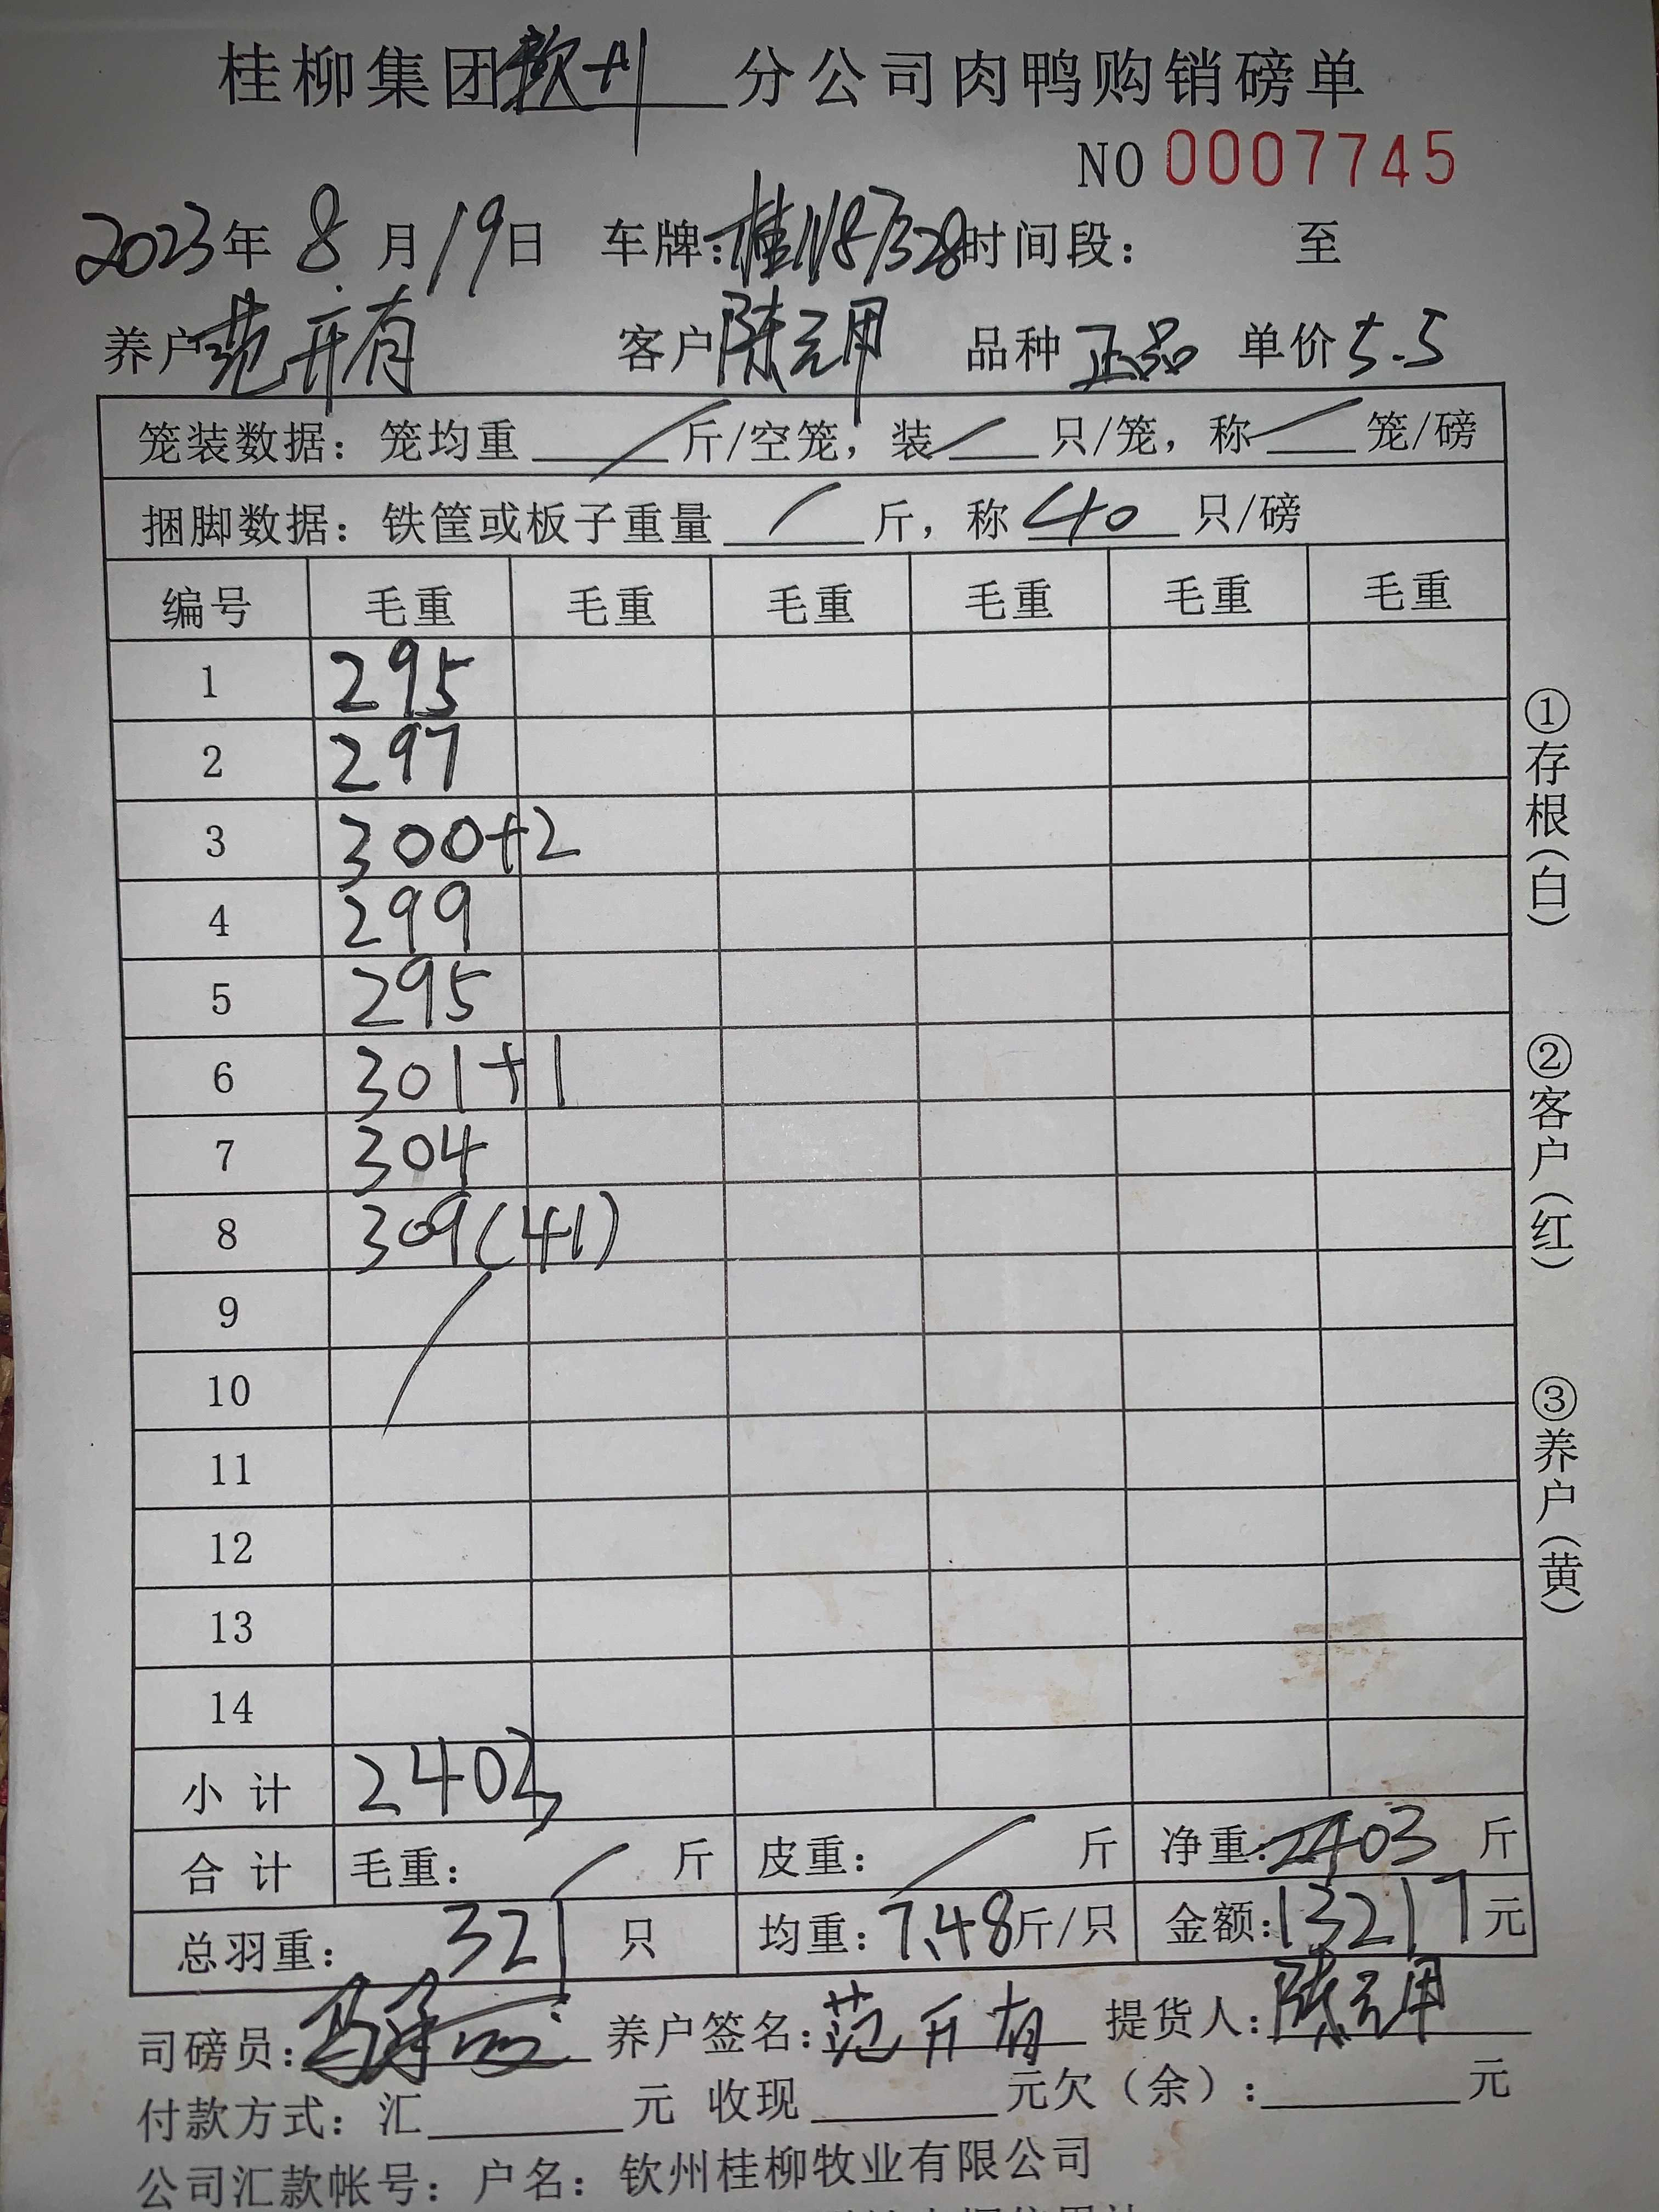 桂柳集团钦州分公司肉鸭购销磅单
NO 0007745
2023年 8月19日 车牌：桂N87328 时间段： 至
养户 范开有 客户 陈元甲 品种 正品 单价 5.5
笼装数据：笼均重 / 斤/空笼，装 / 只/笼，称 / 笼/磅
捆脚数据：铁筐或板子重量 / 斤，称 40 只/磅
编号 毛重 毛重 毛重 毛重 毛重 毛重
1 295
2 297
3 300+2
4 299
5 295
6 301+1
7 304
8 309(41)
9
10
11
12
13
14
小计 2403
合计 毛重： / 斤 皮重： / 斤 净重：2403 斤
总羽重： 321 只 均重：7.48斤/只 金额：13217元
司磅员： 养户签名：范开有 提货人：陈元甲
付款方式：汇 元 收现 元欠（余）： 元
公司汇款帐号：户名：钦州桂柳牧业有限公司
①存根（白）
②客户（红）
③养户（黄）